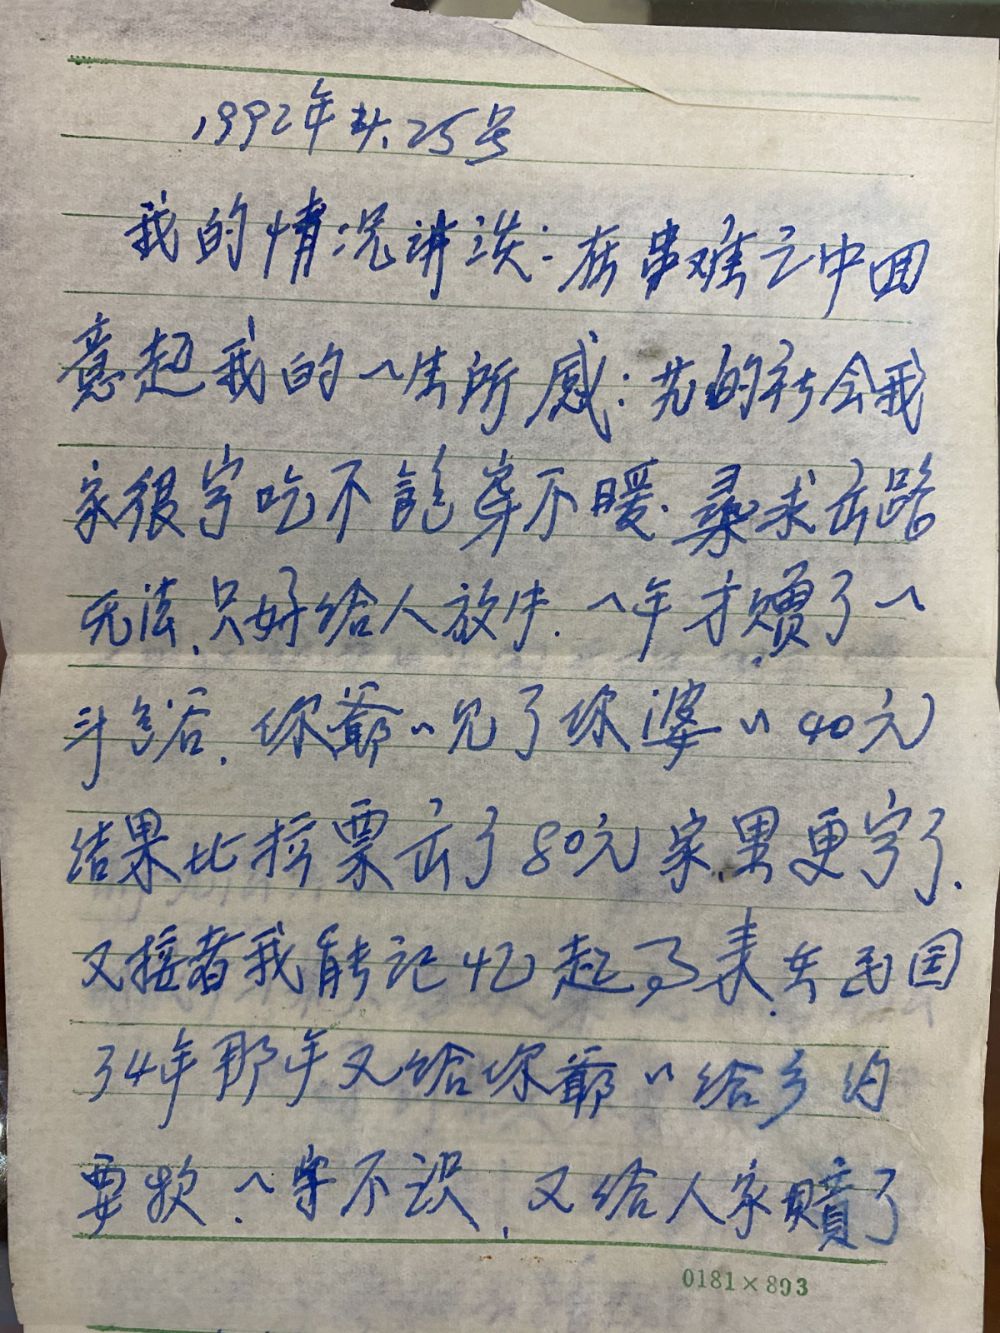 1992年4.25号
我的情况讲谈:在患难之中回
意起我的一生所感:旧的社会我
家很穷吃不饱穿不暖.寻求出路
无法,只好给人放牛.一年才赚了一
斗谷.你爷〃 了你婆〃40元
结果比 票去了80元家里更穷了.
又接着我能记忆起 了来.在民国
34年那年又给你爷〃给乡约
要款.一字不识,又给人家赔了
0181×893